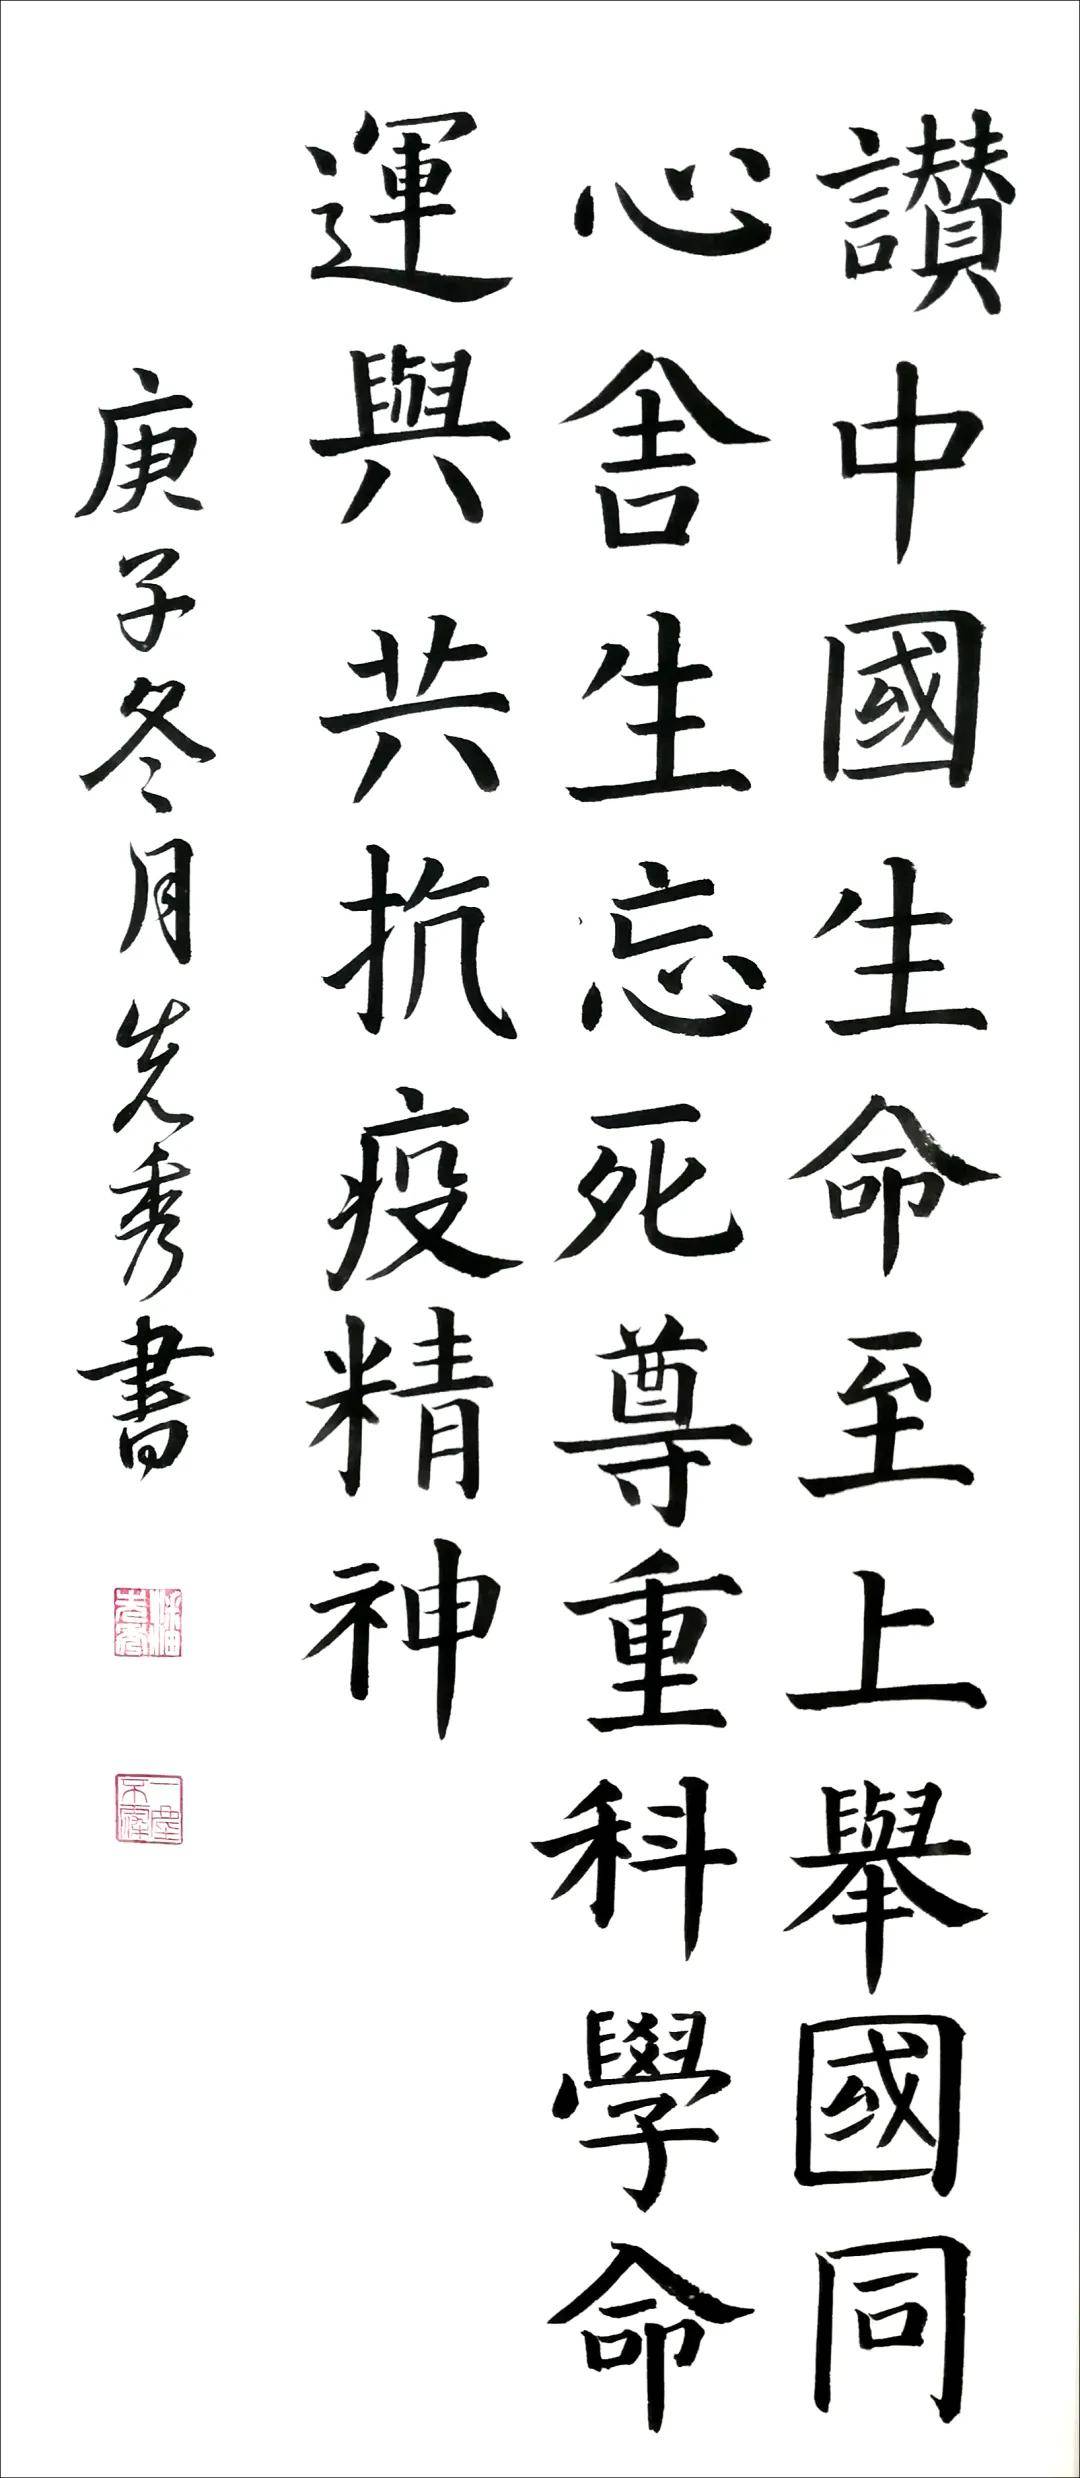 讃中國生命至上舉國同
心舍生忘死尊重科學命
運與共抗疫精神
庚子冬月先秀書